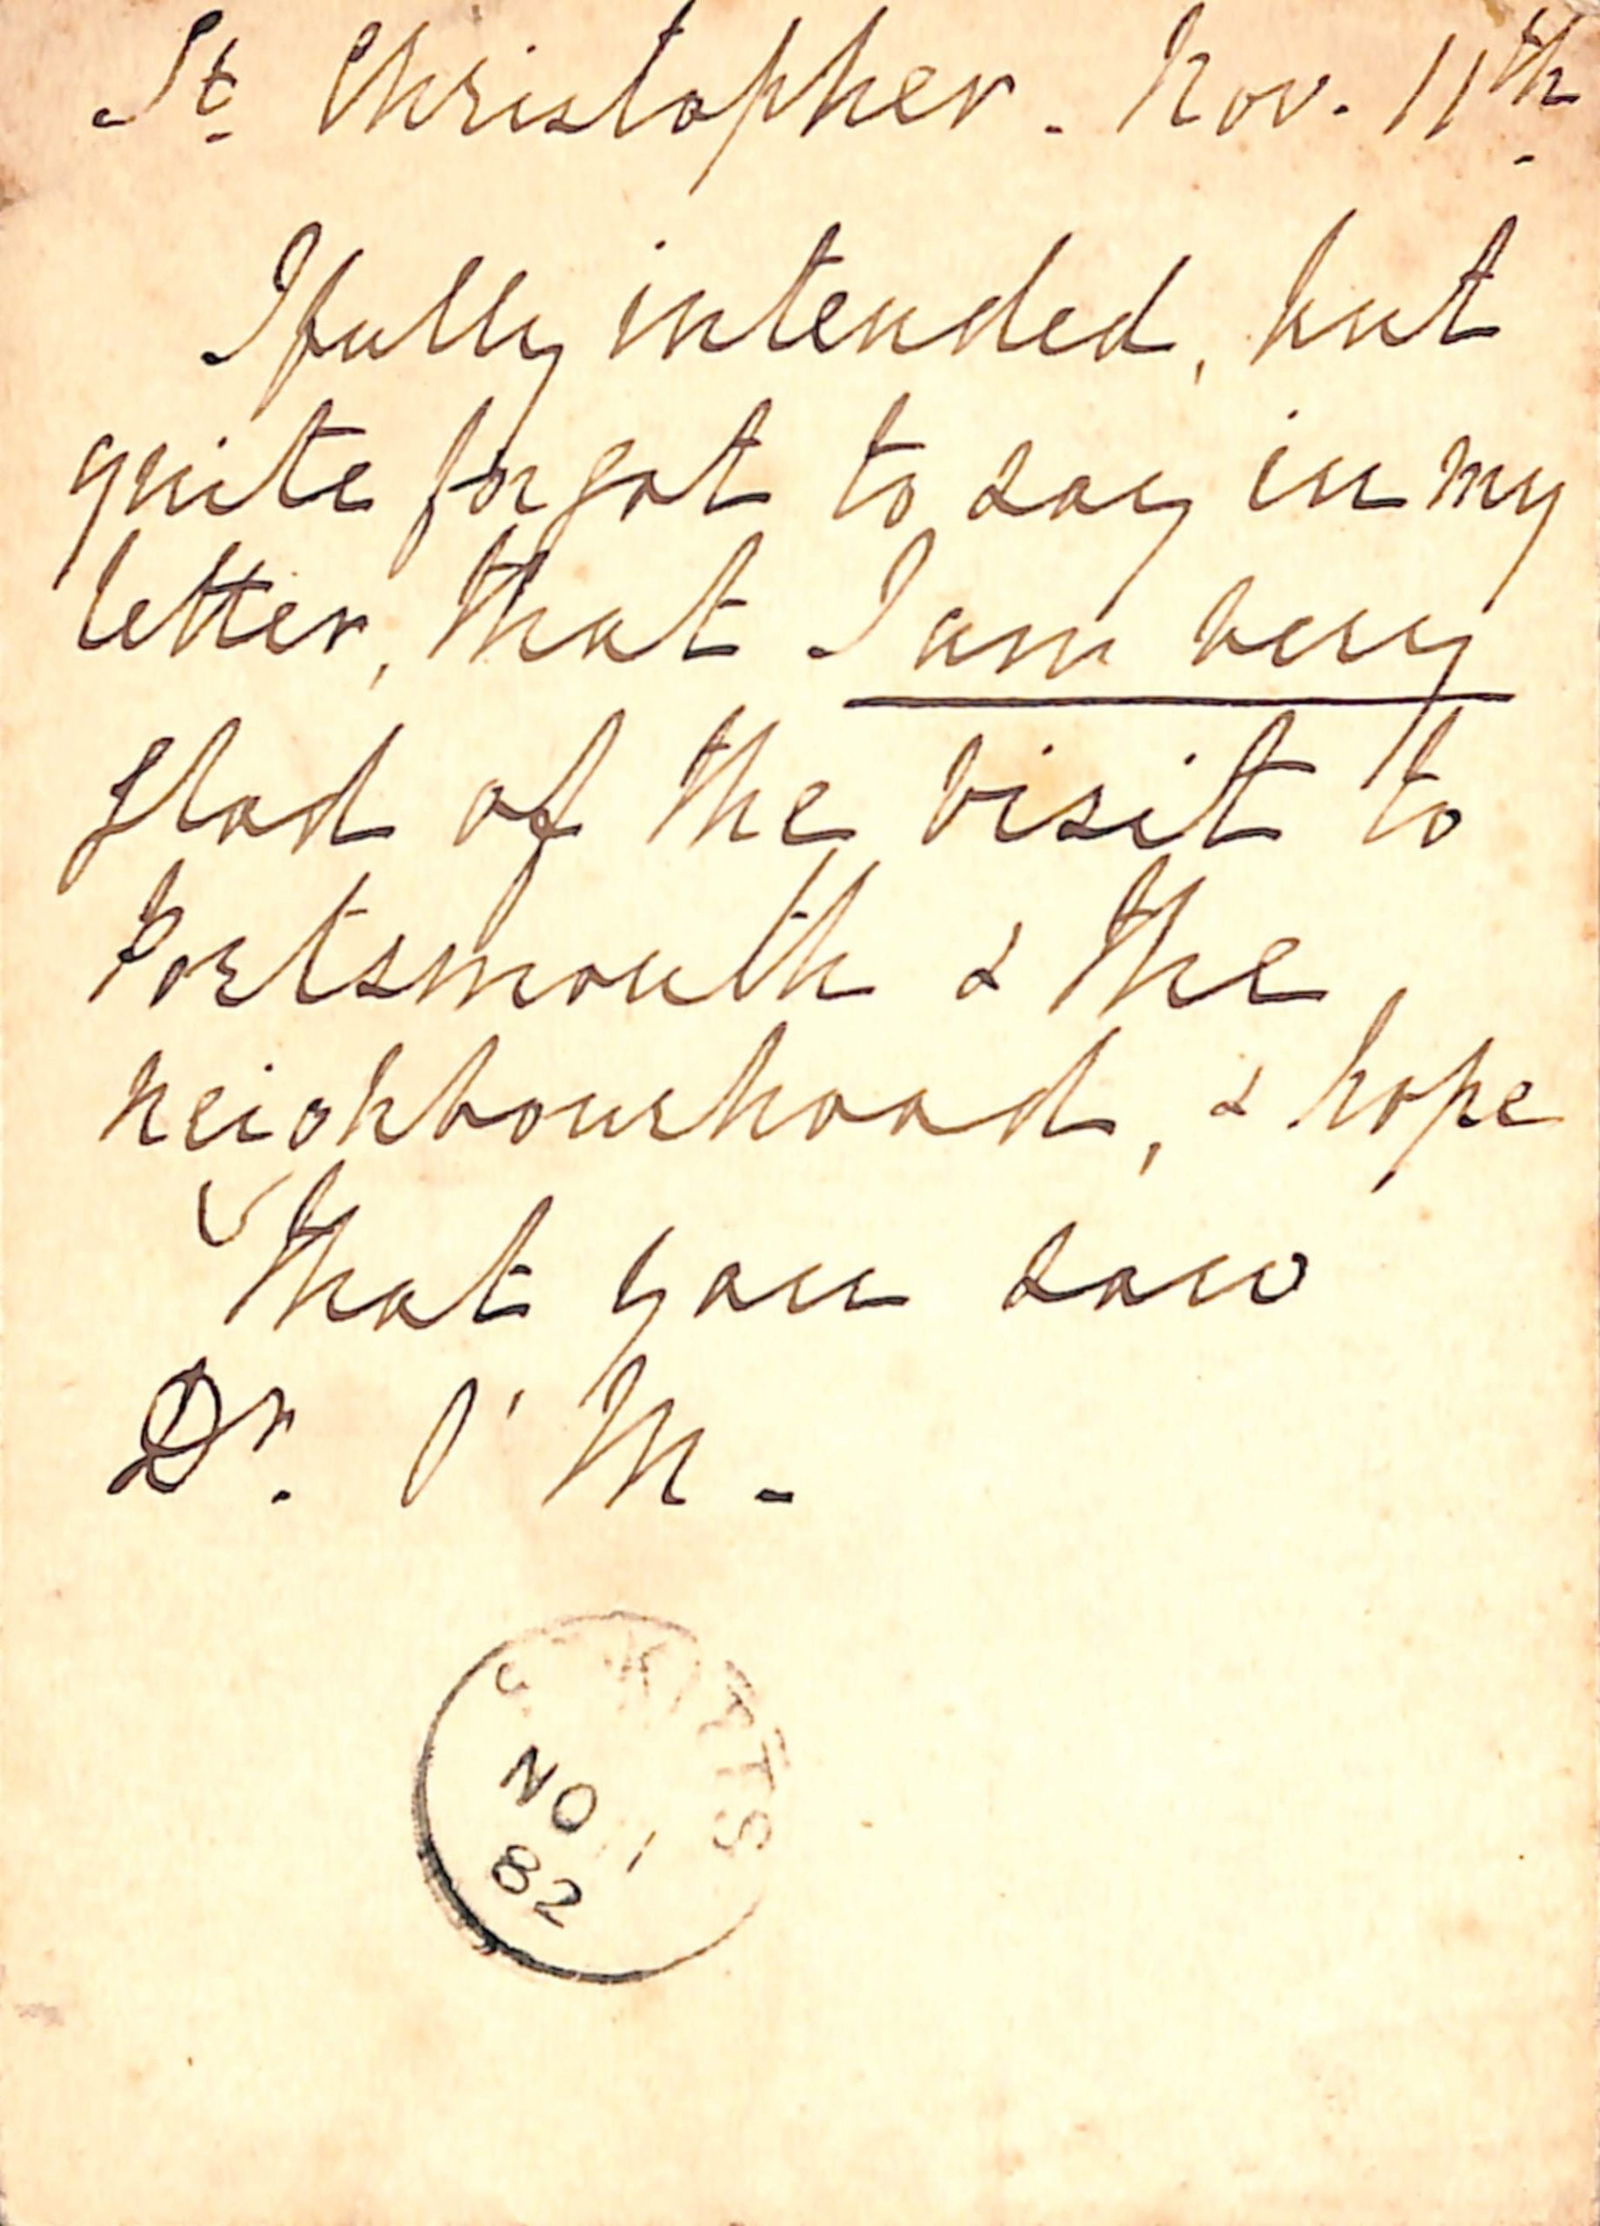 St Christopher. Nov. 11th
I fully intended, but
quite forgot to say in my
letter, that I am very
glad of the visit to
Portsmouth & the
neighbourhood, & hope
that you saw
Dr. O'M.
KITTS
NO 11
82